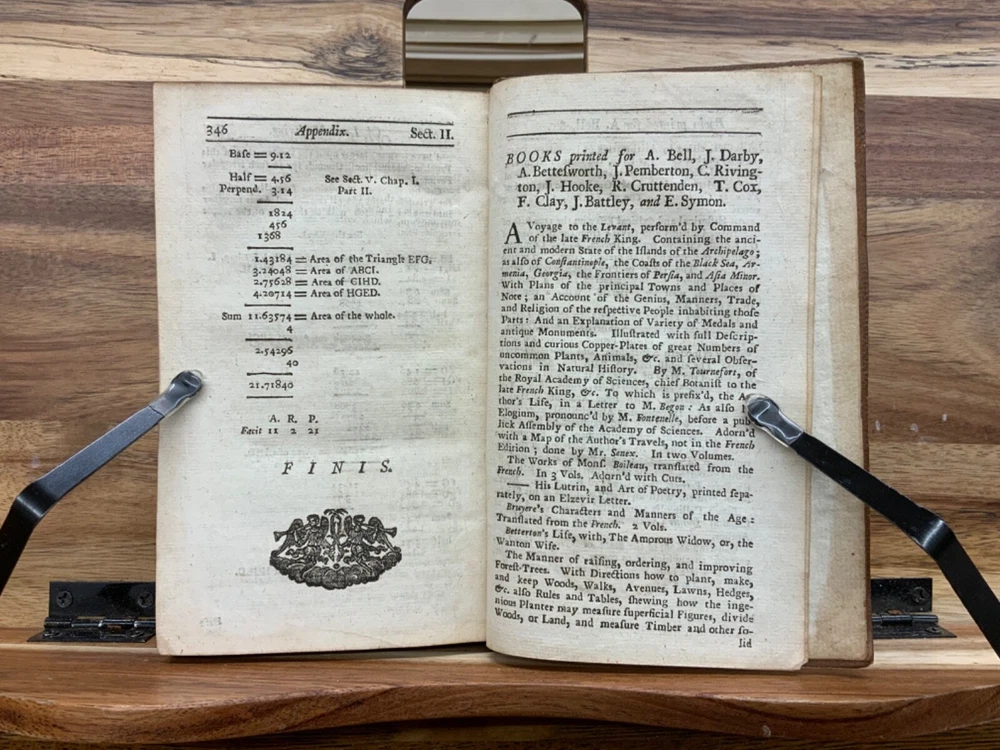 346 Appendix. Sect. II.
Base = 9.12
Half = 4.56 See Sect. V. Chap. I.
Perpend. 3.14 Part II.
1824
456
1368
1.43184 = Area of the Triangle EFG.
3.24048 = Area of ABCI.
2.75628 = Area of CIHD.
4.20714 = Area of HGED.
Sum 11.63574 = Area of the whole.
4
2.54296
40
21.71840
A. R. P.
Facit 11 2 21
FINIS.
BOOKS printed for A. Bell, J. Darby,
A. Bettesworth, J. Pemberton, C. Riving-
ton, J. Hooke, R. Cruttenden, T. Cox,
F. Clay, J. Battley, and E. Symon.
A Voyage to the Levant, perform'd by Command
of the late French King. Containing the anci-
ent and modern State of the Islands of the Archipelago;
as also of Constantinople, the Coasts of the Black Sea, Ar-
menia, Georgia, the Frontiers of Persia, and Asia Minor.
With Plans of the principal Towns and Places of
Note; an Account of the Genius, Manners, Trade,
and Religion of the respective People inhabiting those
Parts: And an Explanation of Variety of Medals and
antique Monuments. Illustrated with full Descrip-
tions and curious Copper-Plates of great Numbers of
uncommon Plants, Animals, &c. and several Obser-
vations in Natural History. By M. Tournefort, of
the Royal Academy of Sciences, chief Botanist to the
late French King, &c. To which is prefix'd, the
thor's Life, in a Letter to M. Begon: As also
Elogium, pronounc'd by M. Fontenelle, before a pub-
lick Assembly of the Academy of Sciences. Adorn'd
with a Map of the Author's Travels, not in the French
Edition; done by Mr. Senex. In two Volumes.
The Works of Mons. Boileau, translated from the
French. In 3 Vols. Adorn'd with Cuts.
—— His Lutrin, and Art of Poetry, printed sepa-
rately, on an Elzevir Letter.
Bruyere's Characters and Manners of the Age:
Translated from the French. 2 Vols.
Betterton's Life, with, The Amorous Widow, or, the
Wanton Wife.
The Manner of raising, ordering, and improving
Forest-Trees. With Directions how to plant, make,
and keep Woods, Walks, Avenues, Lawns, Hedges,
&c. also Rules and Tables, shewing how the inge-
nious Planter may measure superficial Figures, divide
Woods, or Land, and measure Timber and other so-
lid